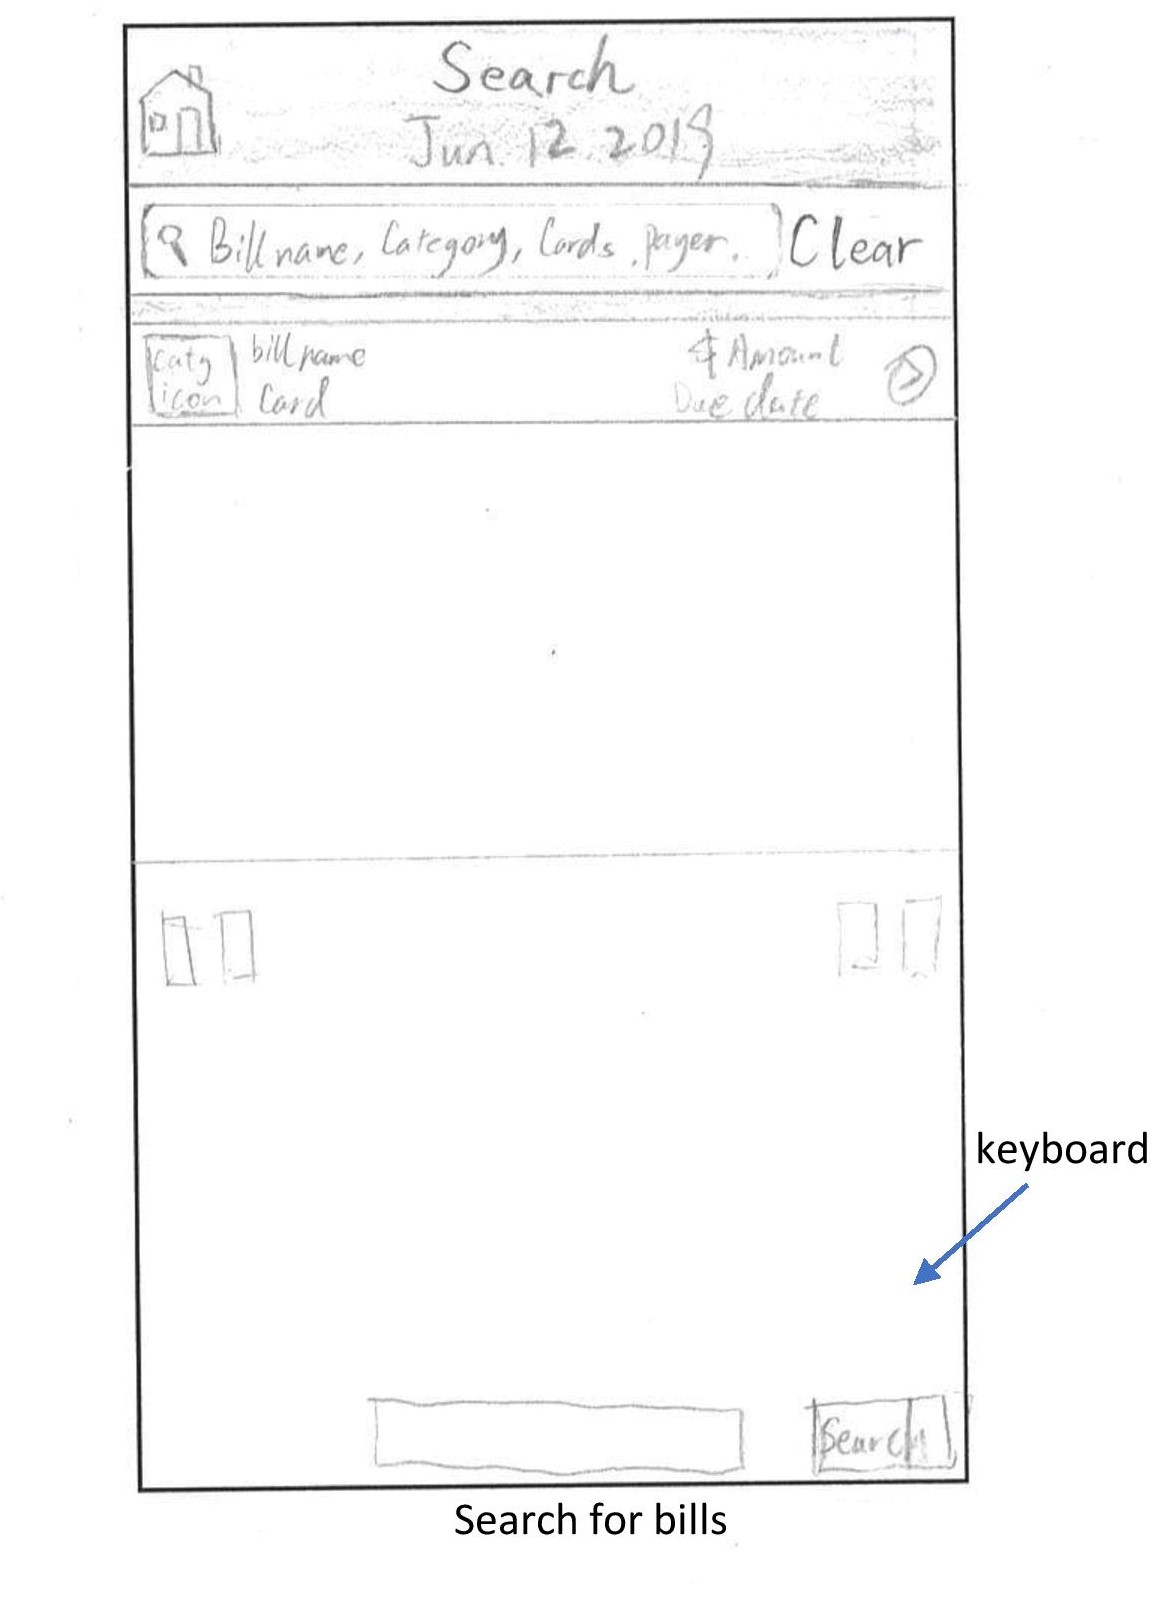 Search
Jun. 12. 2019
Bill name, Category, Cards, payer.
Clear
Catg
icon
bill name
Card
$ Amount
Due date
keyboard
Search
Search for bills